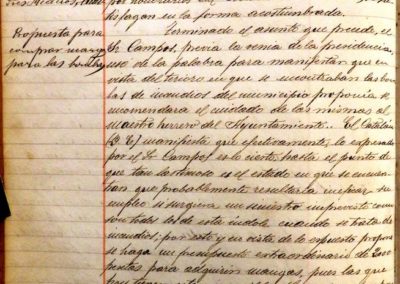 por honorarios
tisfagan en la forma acostumbrada.
Propuesta para
comprar mang
para las bombas
Terminado el asunto que precede, el
Sr. Campos, previa la venia de la presidencia,
uso de la palabra para manifestar que en
vista del en que se encontraban las bom
bas de incendios del municipio proponia se
encomendara el cuidado de las mismas al
maestro herrero del Ayuntamiento. El Catalan
(D. E) manifiesta que efectivamente lo expresado
por el Sr. Campos es lo cierto, hasta el punto de
que tan lastimoso es el estado en que se encuen
tran, que probablemente resultaria ineficaz su
empleo si surgiera un siniestro imprevisto como
son todos los de esta indole cuando se trata de
incendios; por esto y en vista de lo expuesto propone
se haga un presupuesto extraordinario de
pesetas para adquirir mangas, pues las que